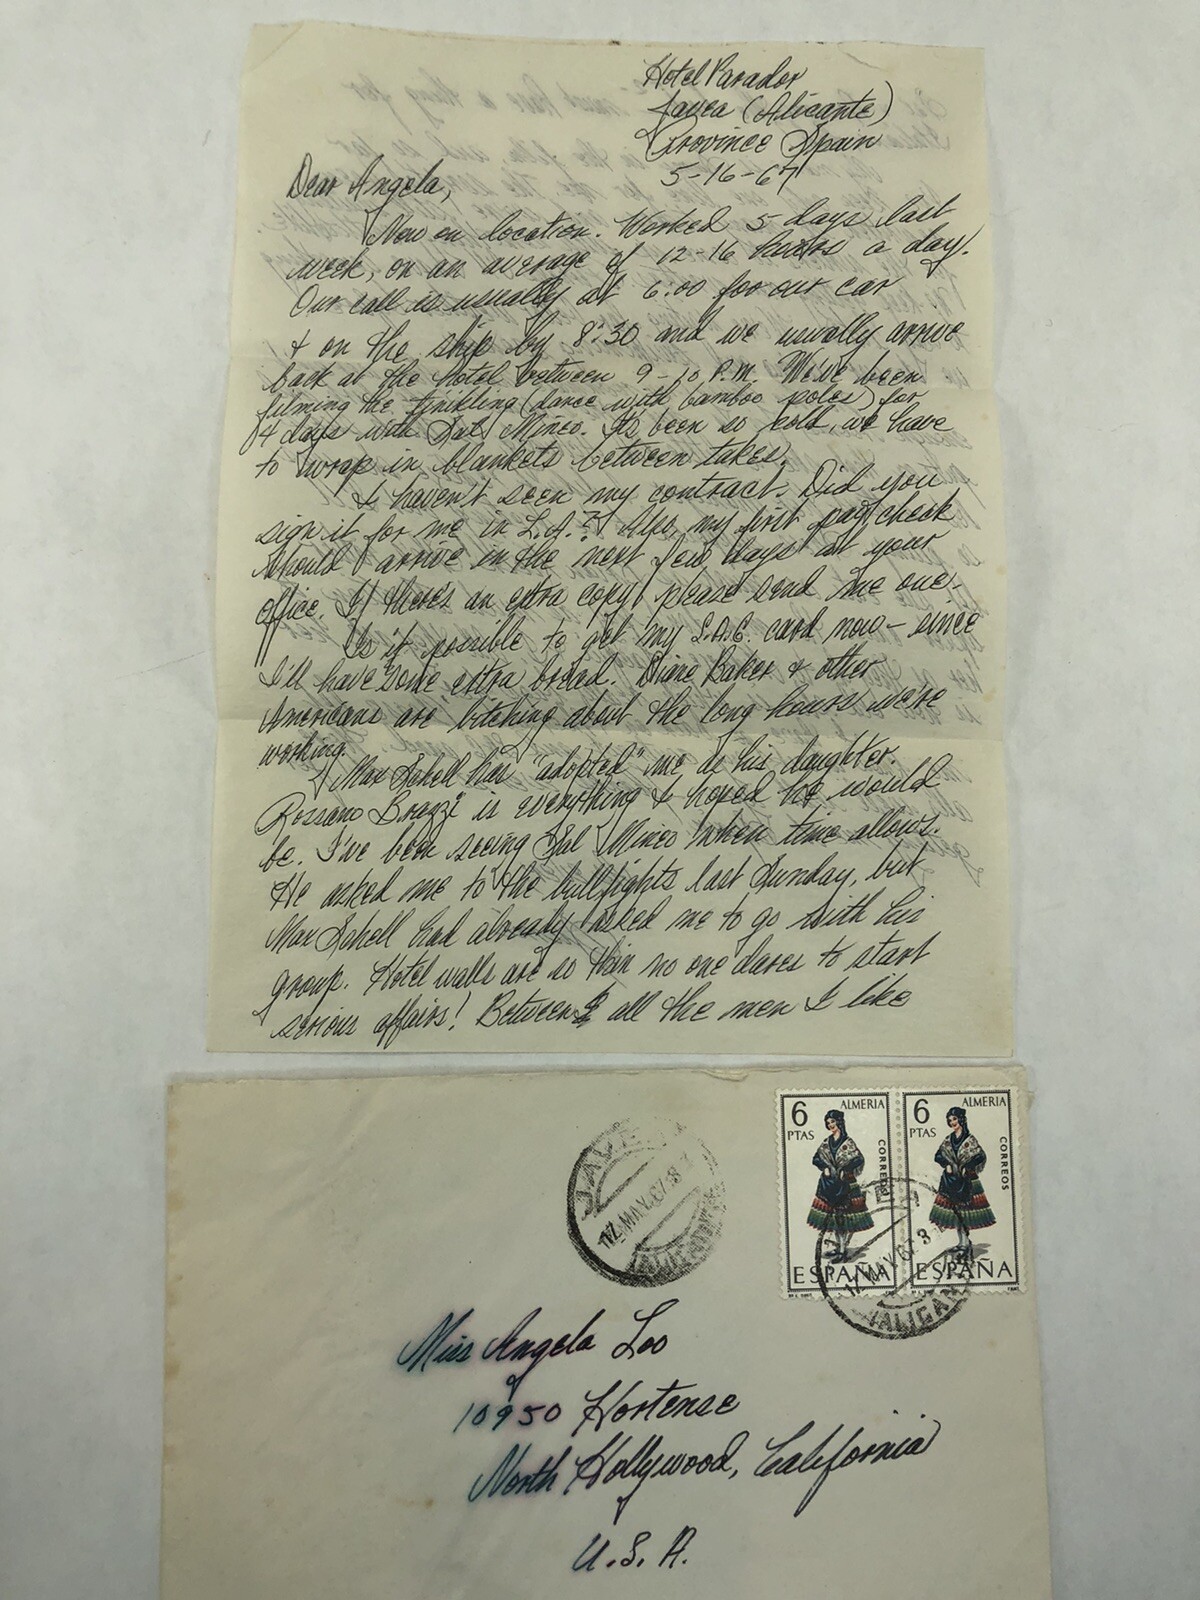 Hotel Parador
Javea (Alicante)
Province Spain
5-16-67
Dear Angela,
Now on location. Worked 5 days last
week, on an average of 12-16 hours a day.
Our call is usually at 6:00 for our car
& on the ship by 8:30 and we usually arrive
back at the hotel between 9-10 P.M. We've been
filming the tinikling (dance with bamboo poles) for
4 days with Sal Mineo. Its been so cold, we have
to wrap in blankets between takes.
I haven't seen my contract. Did you
sign it for me in L.A.? Also, my first pay check
should arrive in the next few days at your
office. If there's an extra copy please send me one.
Is it possible to get my S.A.G. card now - since
I'll have some extra bread. Diane Baker & other
Americans are bitching about the long hours we're
working.
Max Schell has "adopted" me as his daughter.
Rossano Brazzi is everything I hoped he would
be. I've been seeing Sal Mineo when time allows.
He asked me to the bullfights last Sunday, but
Max Schell had already asked me to go with his
group. Hotel walls are so thin no one dares to start
serious affairs! Between all the men I like
6 PTAS ALMERIA CORREOS ESPAÑA
6 PTAS ALMERIA CORREOS ESPAÑA
JAVEA
17 MAY. 67
(ALICANTE)
17 MAY. 67
(ALICANTE)
Miss Angela Loo
10950 Hortense
North Hollywood, California
U.S.A.